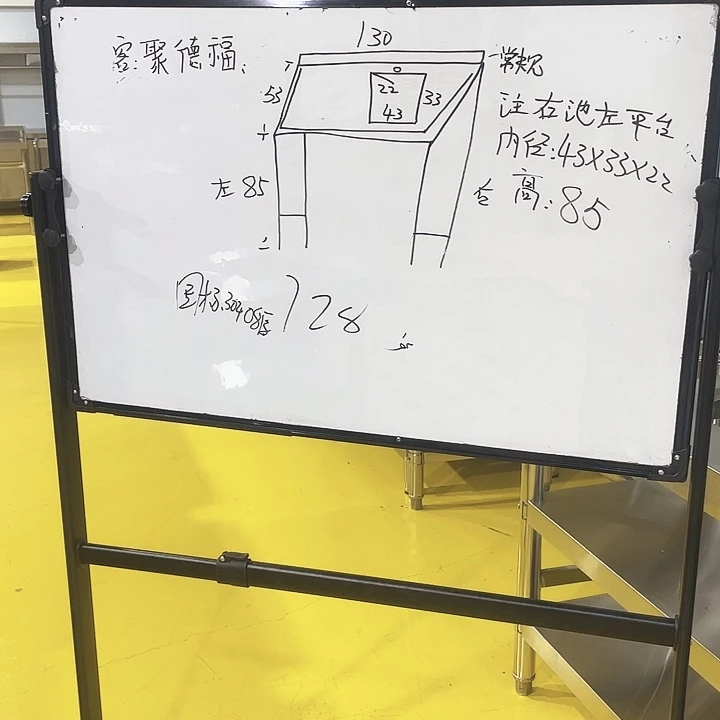 客:聚德福:
130
常规
53
22
43
33
注右池左平台
内径:43X33X22
高:85
左85
右
国标.304 08厚
728